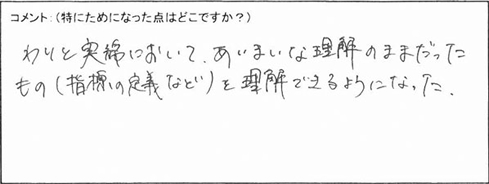 コメント:(特にためになった点はどこですか?)
わりと実績において、あいまいな理解のままだった
もの(指標の定義など)を理解できるようになった.